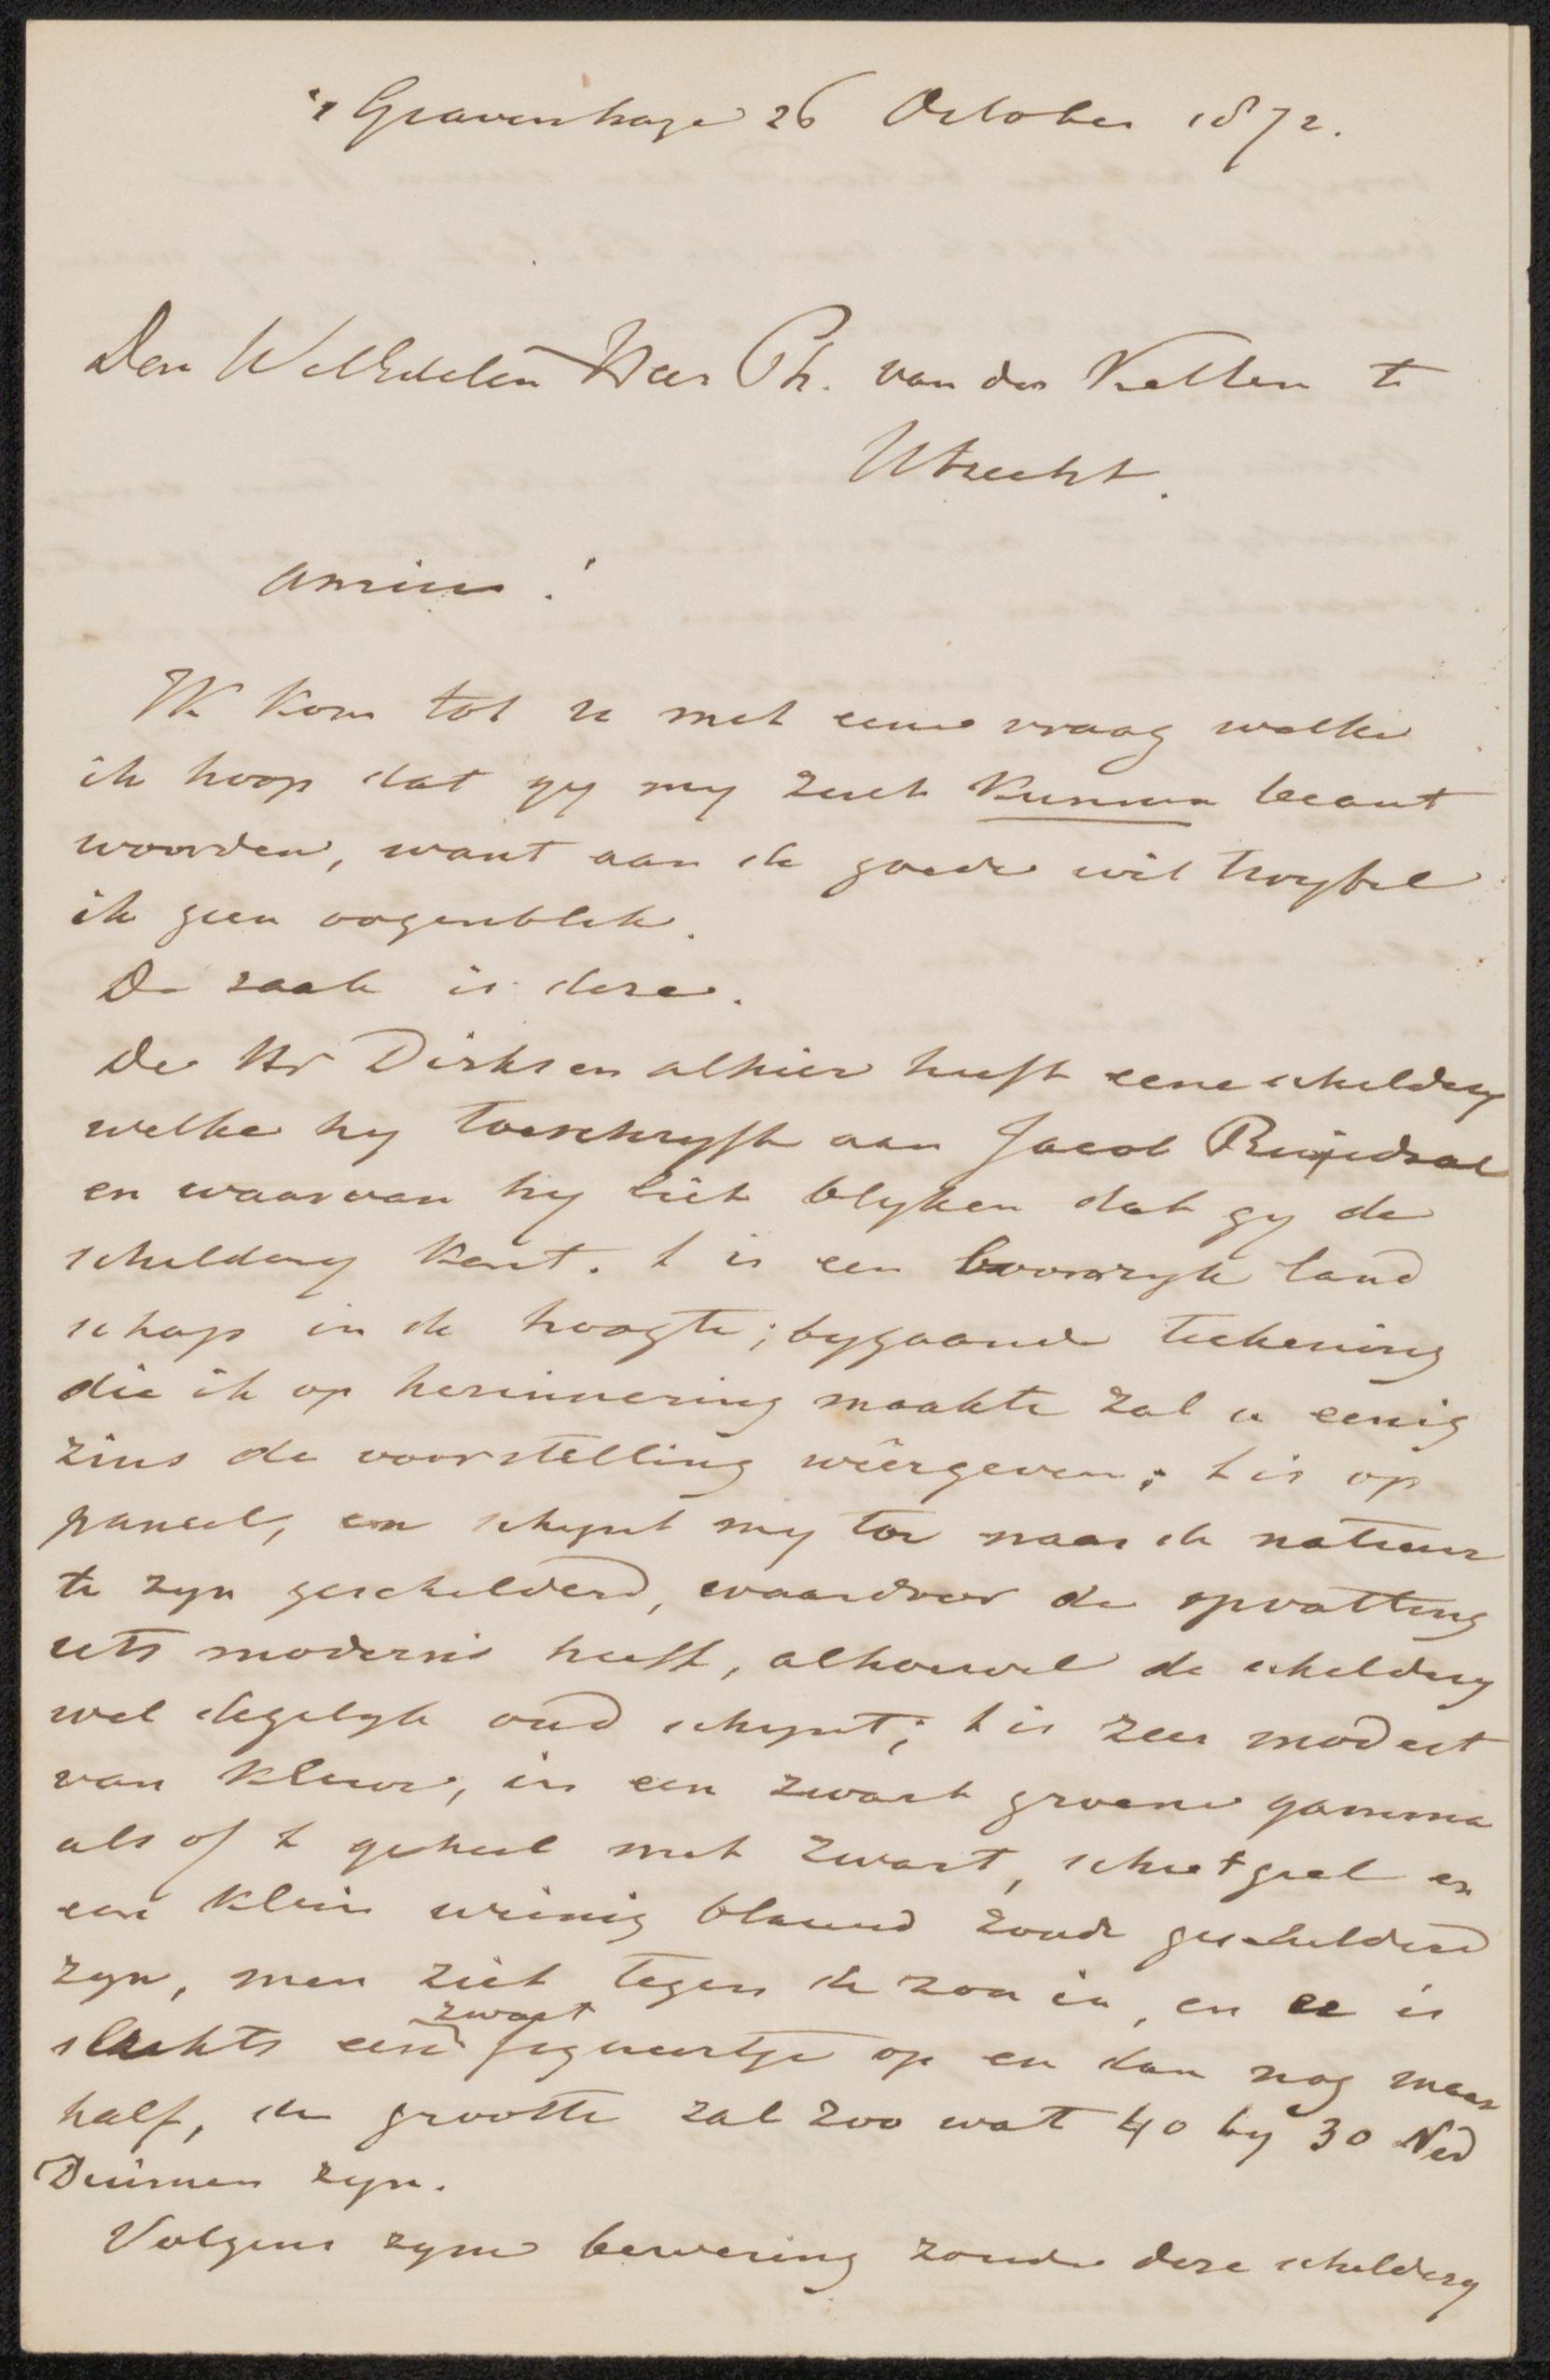 's Gravenhage 26 October 1872.
Den WelEdelen Heer Ph. van der Kellen te
Utrecht.
Amice !
Ik kom tot u met eene vraag welke
ik hoop dat gy my zult kunnen beant
woorden, want aan de goede wil twyfel
ik geen oogenblik.
De zaak is deze.
De Hr Dirksen alhier heeft eene schildery
welke hy toeschryft aan Jacob Ruijsdael
en waarvan hy liet blyken dat gy de
schildery kent. t is een boomryk land
schap in de hoogte; bygaande teekening
die ik op herinnering maakte zal u eenig
zins de voorstelling wêergeven; t is op
paneel, en schynt my toe naar de natuur
te zyn geschilderd, waardoor de opvatting
iets moderns heeft, alhoewel de schildery
wel degelyk oud schynt; t is zeer modest
van kleur, in een zwart groene gamma
als of t geheel met zwart, schietgeel en
een klein weinig blauw zoude geschilderd
zyn, men ziet tegen de zon in, en er is
slechts een zwart figuurtje op en dan nog maar
half, de grootte zal zoo wat 40 by 30 Ned
Duimen zyn.
Volgens zyne bewering zoude deze schildery